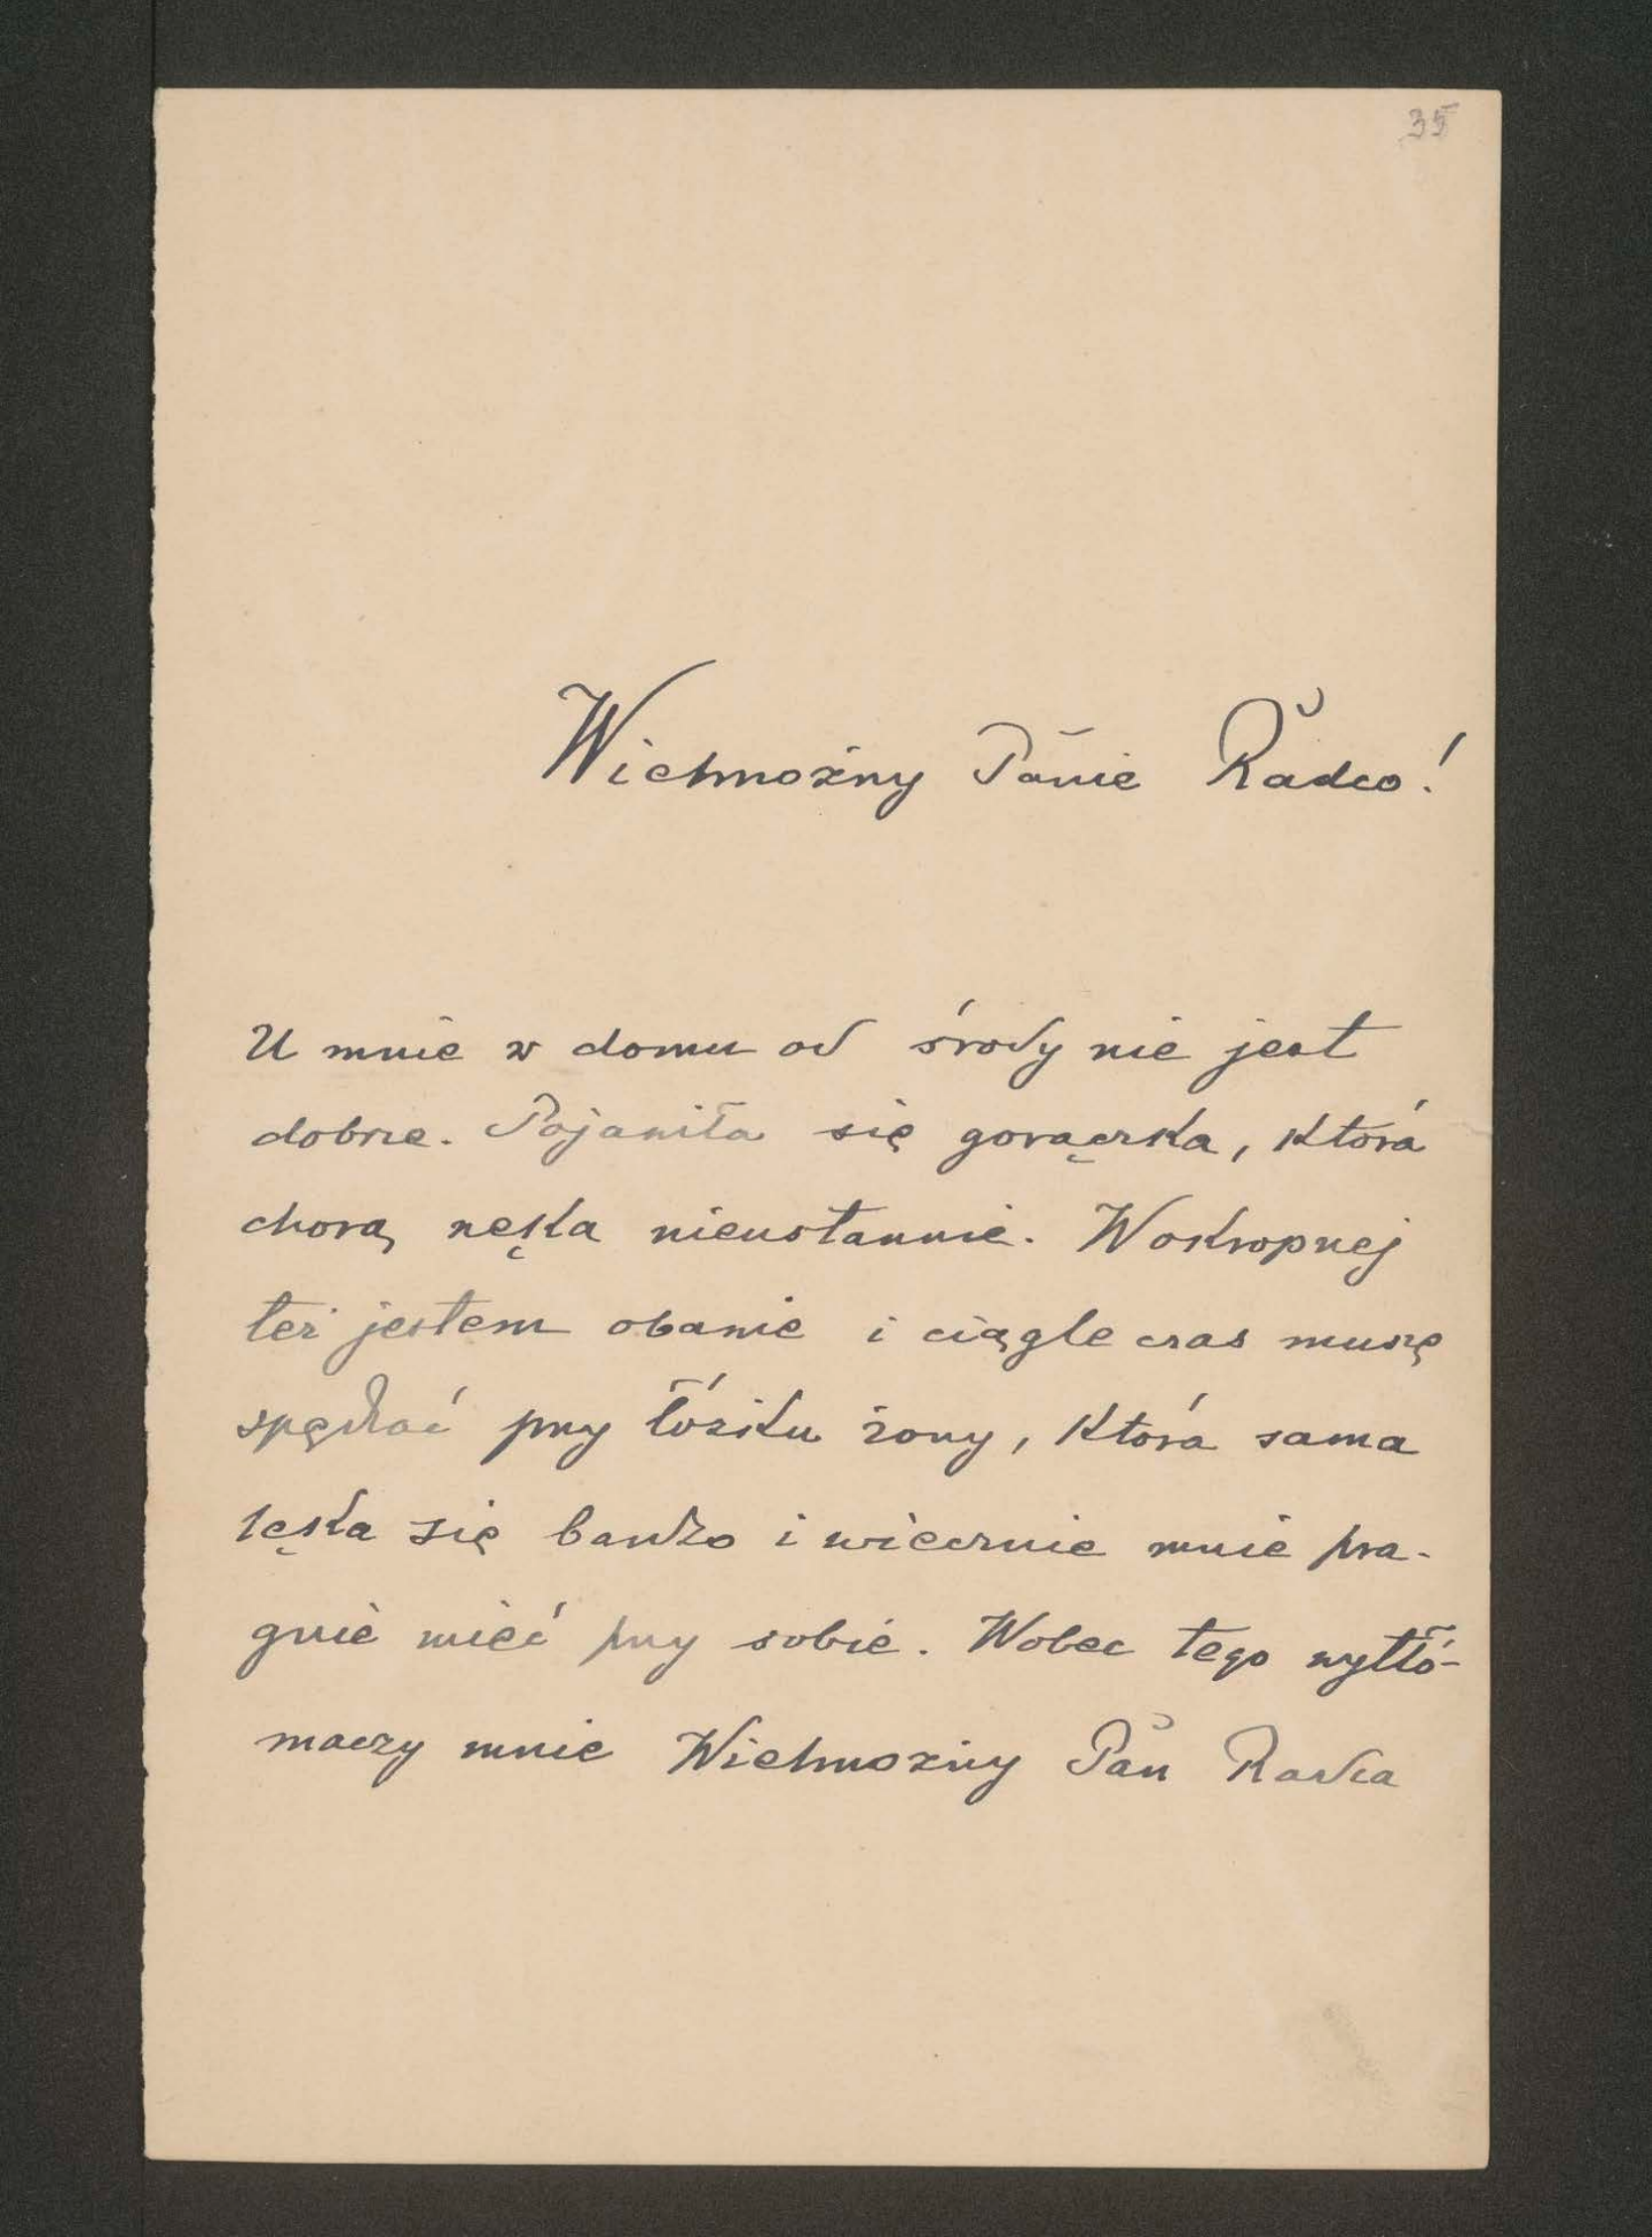 35
Wielmożny Panie Radco!
U mnie w domu od środy nie jest
dobrze. Pojawiła się gorączka, która
chorą nęka nieustannie. W okropnej
też jestem obawie i ciągle czas muszę
spędzać przy łóżku żony, która sama
lęka się bardzo i wiecznie mnie pra-
gnie mieć przy sobie. Wobec tego wytłó-
maczy mnie Wielmożny Pan Radca